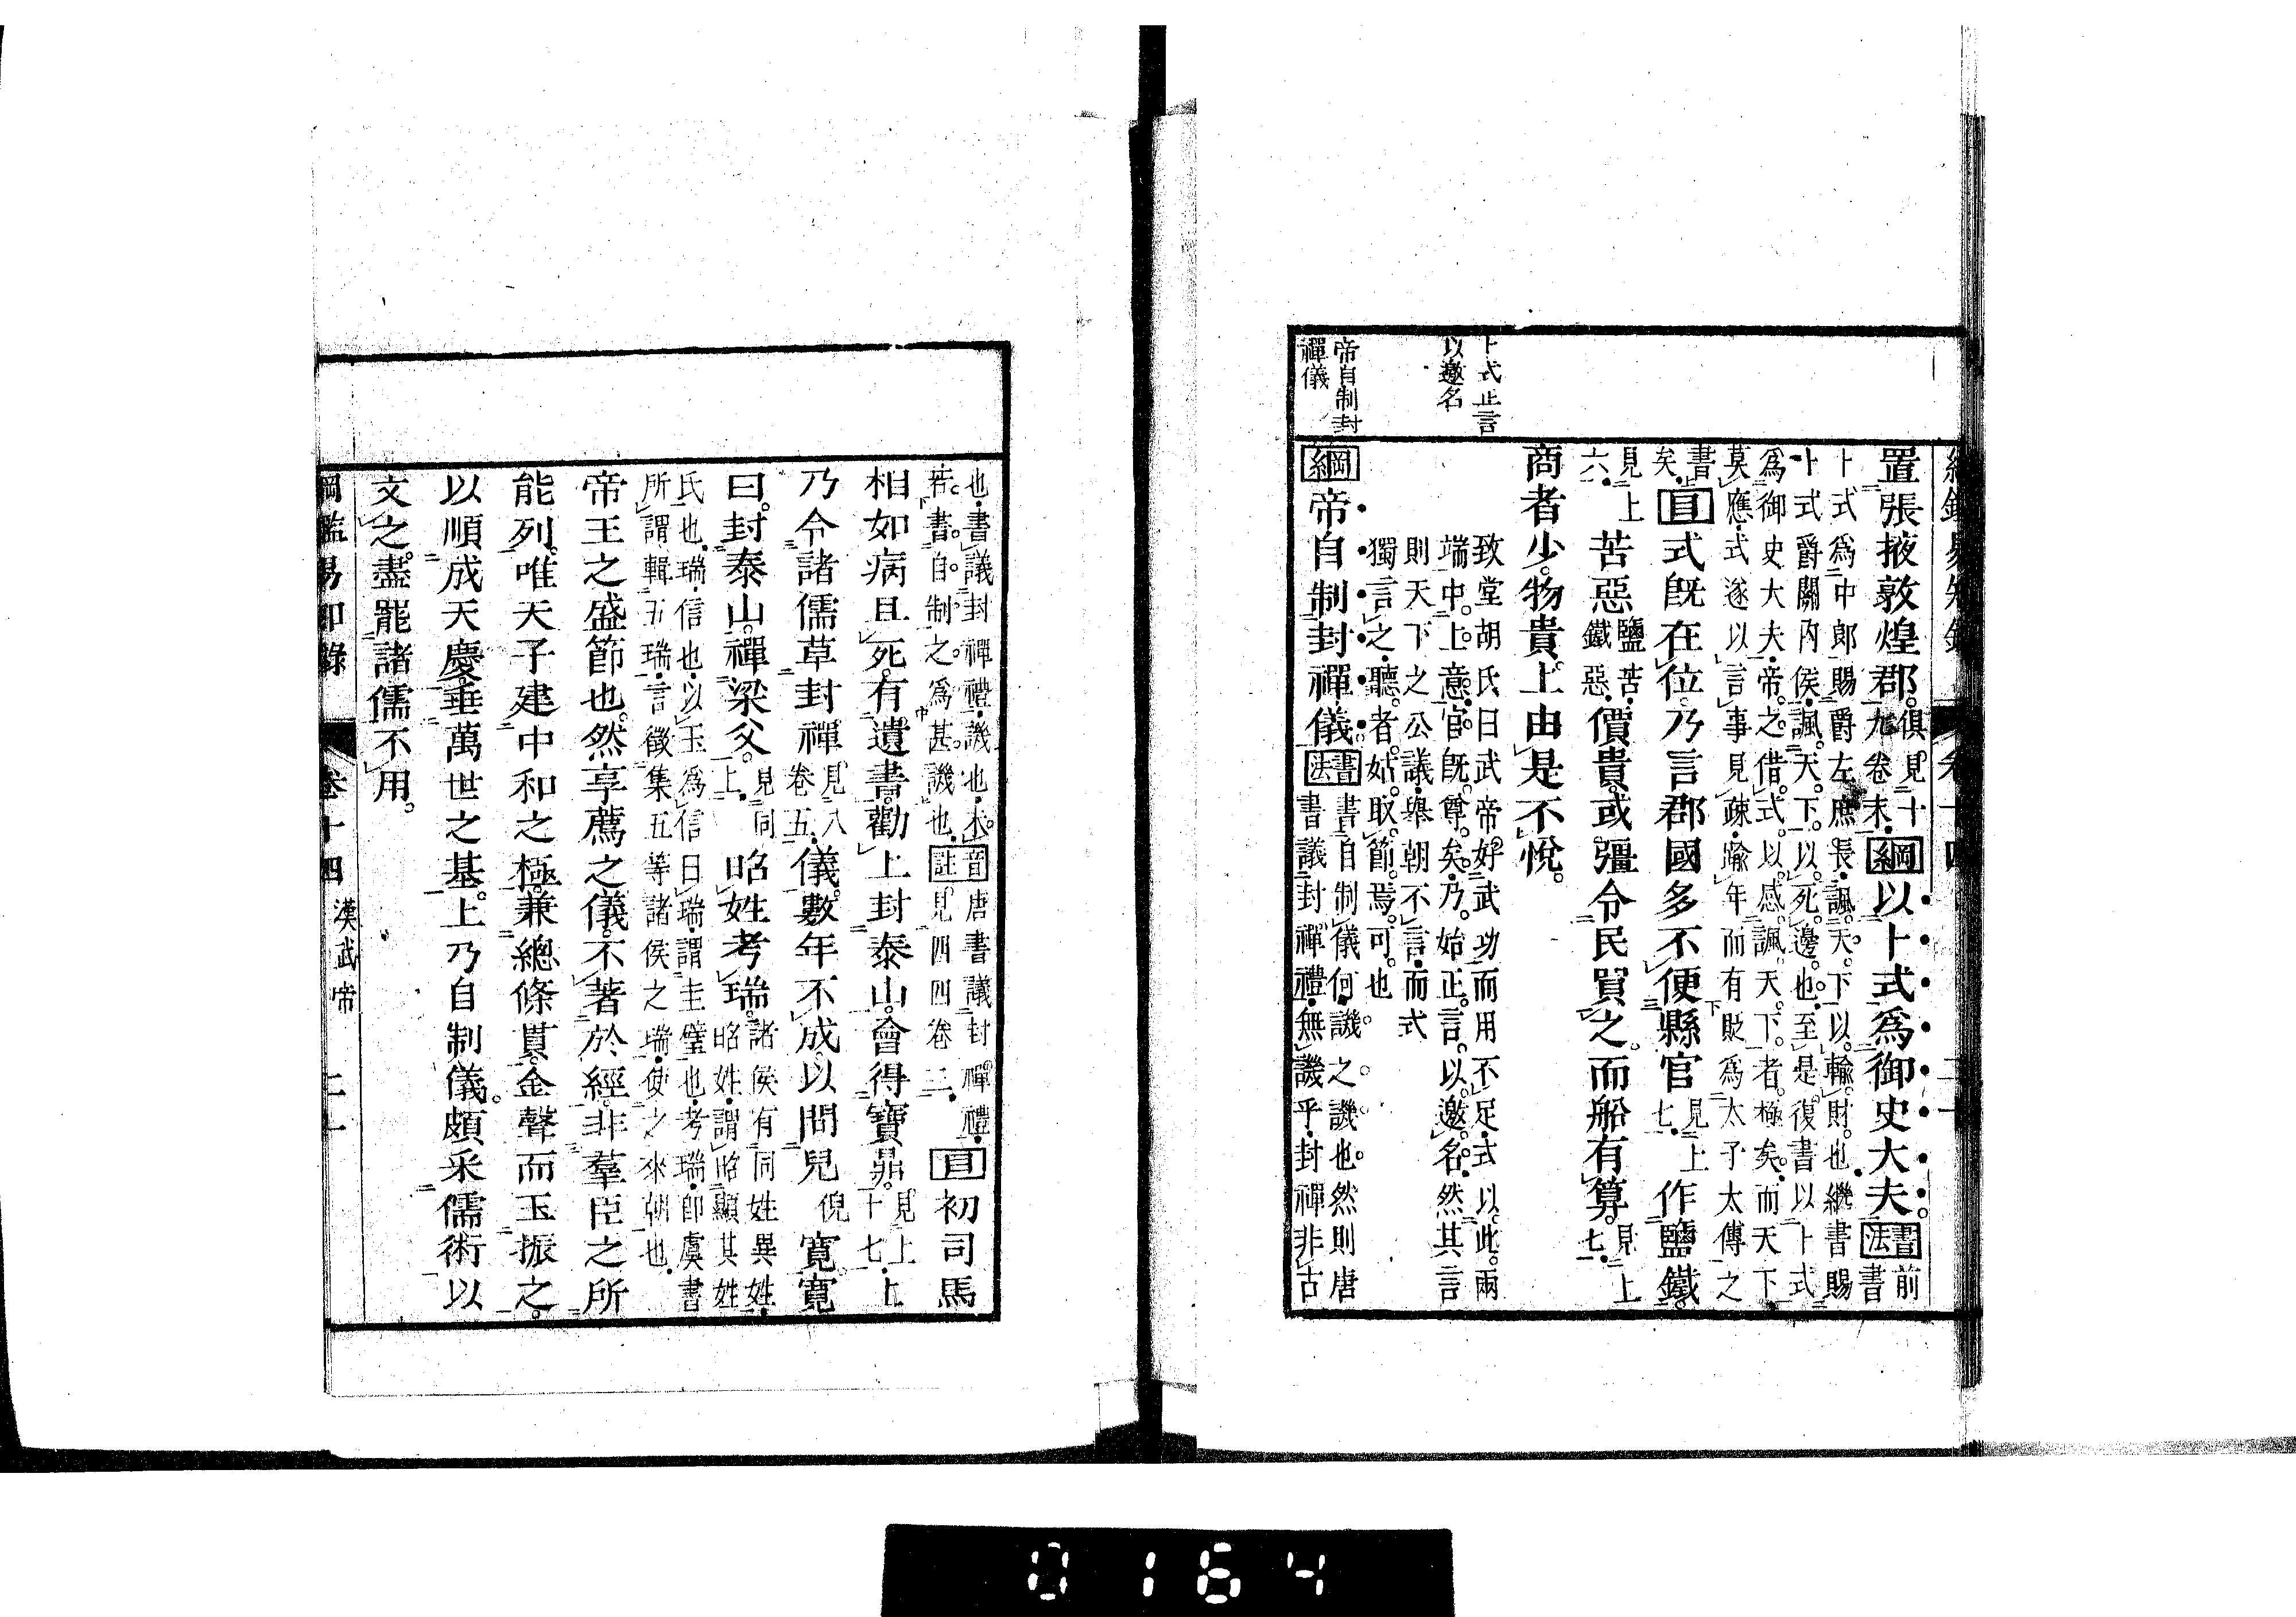 卜式正言
以邀名
帝自制封
禪儀
置張掖敦煌郡俱見十
九卷末綱以卜式爲御史大夫書法前書
卜式爲中郎賜爵左庶長諷天下以輸財也繼書賜
卜式爵關內侯諷天下以死邊也至是復書以卜式
爲御史大夫帝之借式以感諷天下者極矣而天下
莫應式遂以言事見疎踰年而有貶爲太子太傅之
書矣目式旣在位乃言郡國多不便縣官見上七作鹽鐵
見上六苦惡鹽苦鐵惡價貴或彊令民買之而船有算見上七
商者少物貴上由是不悅
致堂胡氏曰武帝好武功而用不足式以此兩
端中上意官旣尊矣乃始正言以邀名然其言
則天下之公議舉朝不言而式
獨言之聽者姑取節焉可也
綱帝自制封禪儀書法書自制儀何譏之譏也然則唐
書議封禪禮無譏乎封禪非古
也書議封禪禮譏也未
若書自制之爲甚譏也音註唐書議封禪禮見四四卷二目初司馬
相如病且死有遺書勸上封泰山會得寶鼎見上十七上
乃令諸儒草封禪見八卷五儀數年不成以問兒倪寬寬
曰封泰山禪梁父見同上昭姓考瑞諸侯有同姓異姓昭姓謂昭顯其姓
氏也瑞信也以玉爲信曰瑞謂圭璧也考瑞卽虞書
所謂輯五瑞言徵集五等諸侯之瑞使之來朝也
帝王之盛節也然享薦之儀不著於經非羣臣之所
能列唯天子建中和之極兼總條貫金聲而玉振之
以順成天慶垂萬世之基上乃自制儀頗采儒術以
文之盡罷諸儒不用
綱鑑易知錄 卷十四 漢武帝
0164